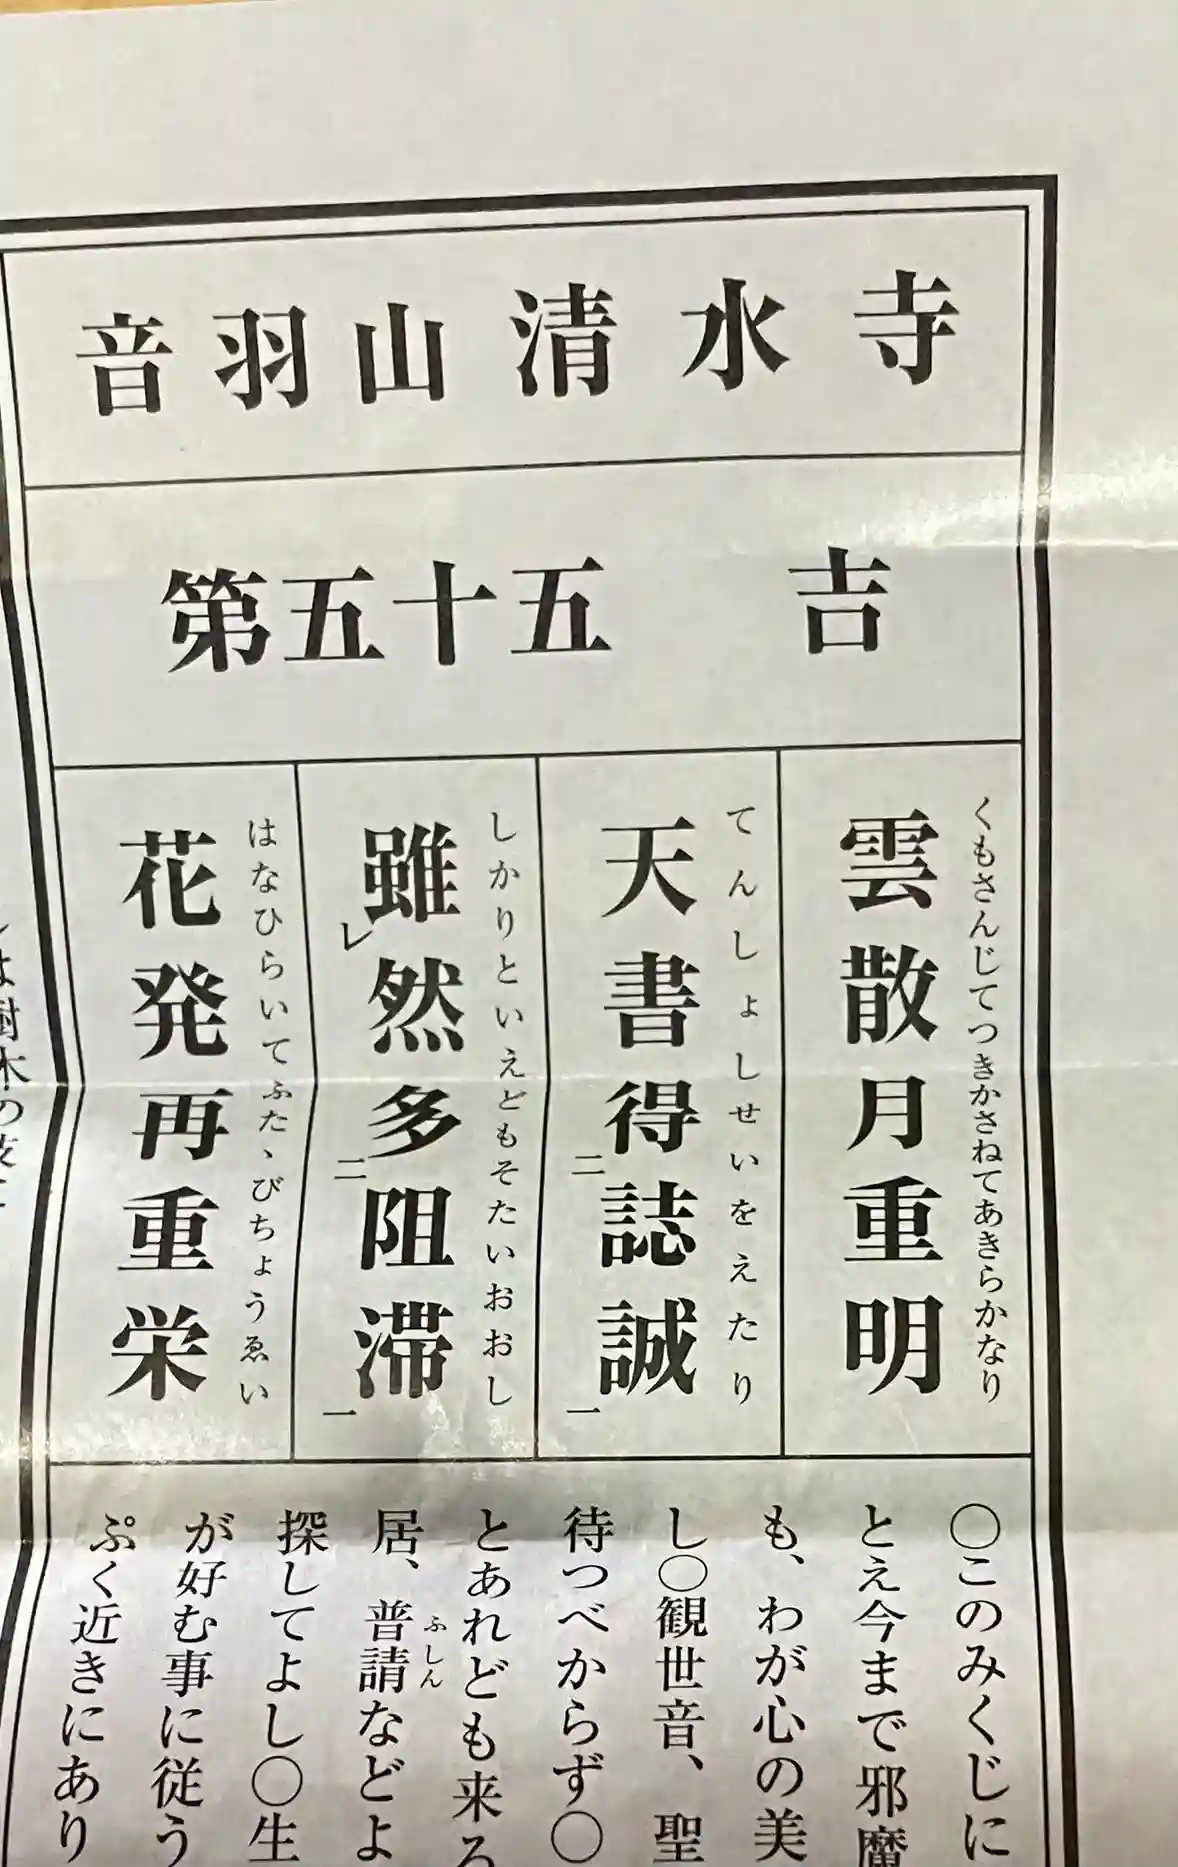 音羽山清水寺
第五十五 吉
くもさんじてつきかさねてあきらかなり
雲散月重明
てんしょしせいをえたり
天書得二誌誠一
しかりといえどもそたいおおし
雖レ然多二阻滞一
はなひらいてふたゝびちょうゑい
花発再重栄
〇このみくじに
とえ今まで邪魔
も、わが心の美
し〇観世音、聖
待つべからず〇
とあれども来ろ
ふしん
居、普請などよ
探してよし〇生
が好む事に従う
ぷく近きにあり